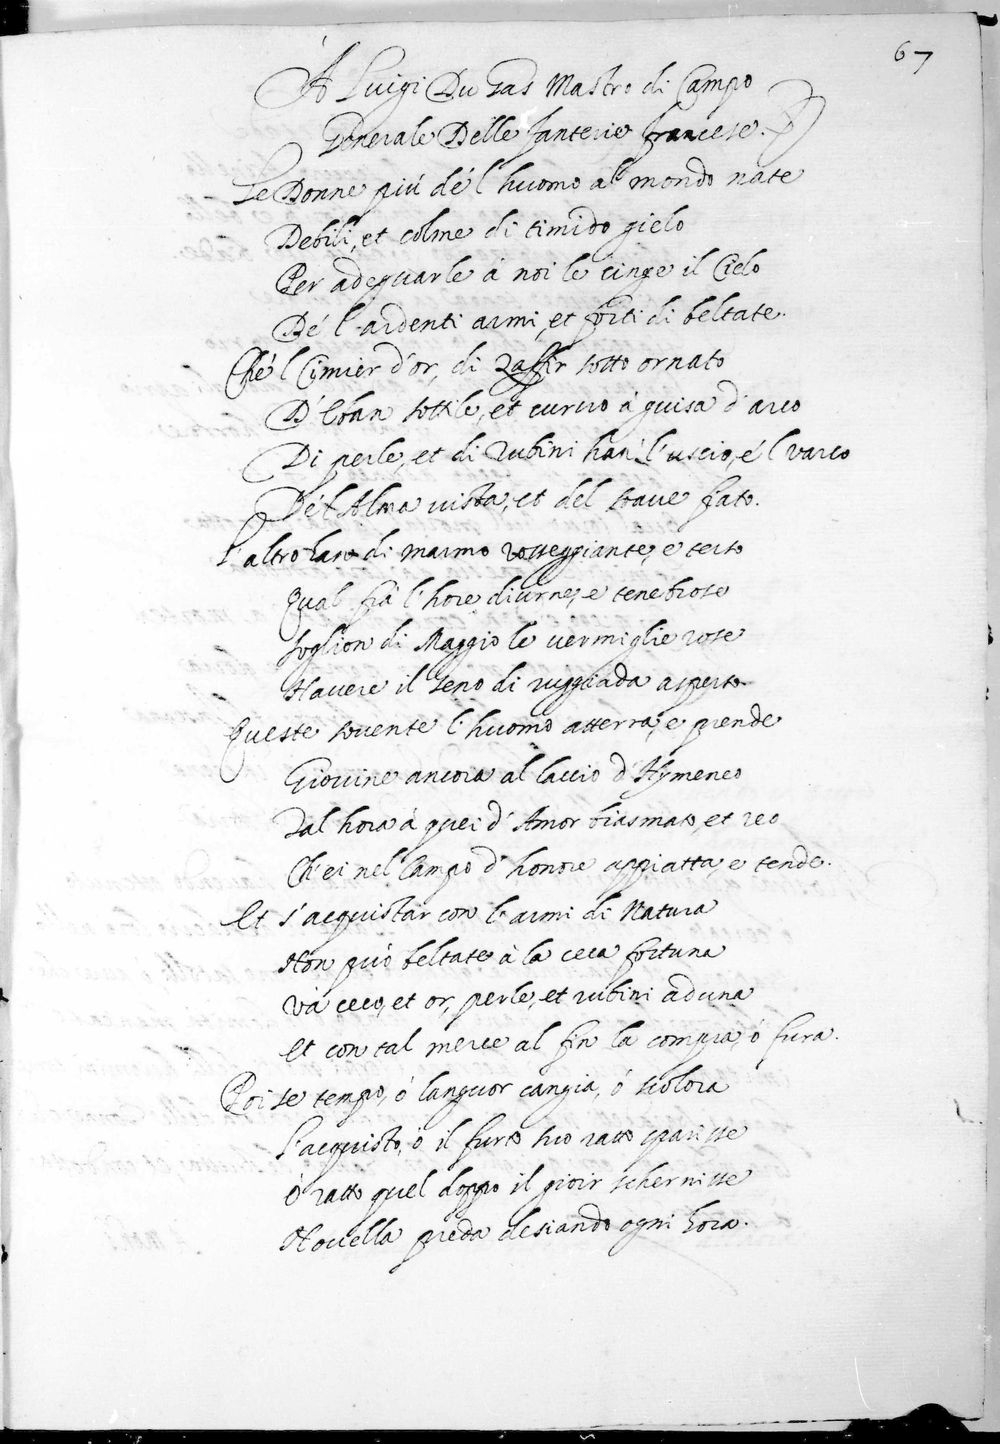 67
À Luigi Du Gas Mastro di Campo
Generale Delle fanterie francese.
Le Donne più dé l'huomo al mondo nate
Debili, et colme di timido gielo
Per adeguarle à noi le cinge il Cielo
Dé l'ardenti armi, et forti di beltate.
Ché l Cimier d'or, di Zaffir sotto ornato
D'Eban sottile, et curvo à guisa d'arco
Di perle, et di rubini han' l'uscio, é l varco
Dé l'Alma vista, et del soave fato.
L'altro han di marmo rosseggiante, e terso
Qual frà l'hore diurne, e tenebrose
Soglion di Maggio le vermiglie rose
Havere il seno di ruggiada asperso.
Queste sovente l'huomo atterra, e prende
Giovine ancora al laccio d'Hymeneo
Tal hora à quei d'Amor biasmato, et reo
Ch'ei nel Campo d'honore appiatta, e tende.
Et s'acquistar con l'armi di Natura
Non può beltate à la ceca fortuna
Và ceco, et or, perle, et rubini aduna
Et con tal merce al fin la compra, ó fura.
Poi se tempo, ó languor cangia, ó scolora
L'acquisto, ó il furto suo ratto sparisse
O ratto quel doppo il gioir schernisse
Novella preda desiando ogni hora.